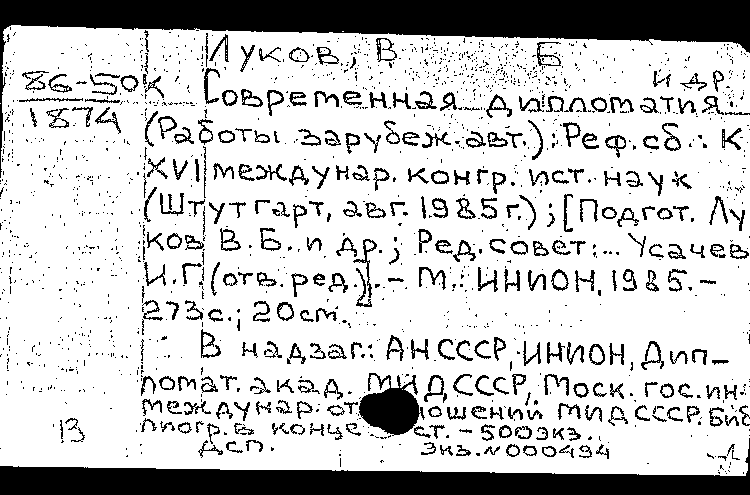 Луков, В Б
и др
86-50к
1874
Современная дипломатия.
(Работы зарубеж. авт.): Реф. сб.: К
XVI междунар. конгр. ист. наук
(Штутгарт, авг. 1985 г.); [Подгот. Лу
ков В. Б. и др.; Ред. совет:... Усачев
И.Г. (отв. ред.)]. – М.: ИНИОН, 1985. –
273 с.; 20 см.
В надзаг.: АН СССР, ИНИОН, Дип–
ломат. акад. МИД СССР, Моск. гос. ин
междунар. от ошений МИД СССР. Биб
лиогр. в конце ст. – 500 экз.
13
ДСП. Экз. N 000494